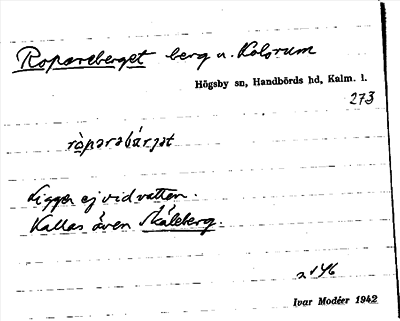 Ropareberget berg n. Kolsrum
Högsby sn, Handbörds hd, Kalm. l.
273
ròparəbárjət
Ligger ej vid vatten.
Kallas även Skåleberg.
Ivar Modéer 1942